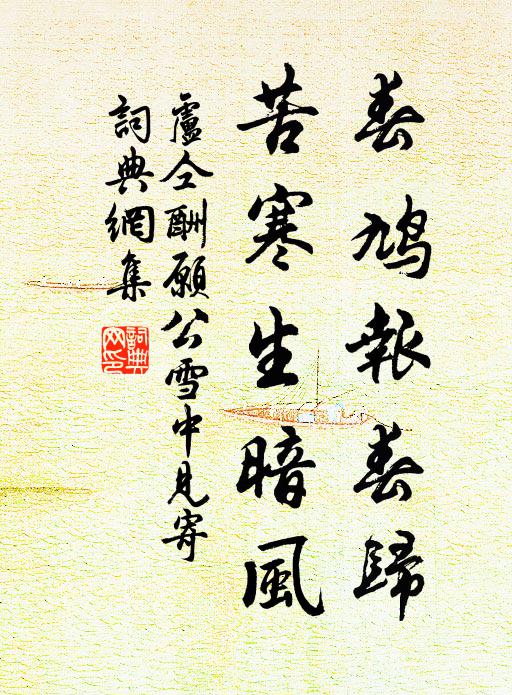 春鳩報春歸
苦寒生暗風
盧仝酬願公雪中見寄
詞典網集
詞典网印